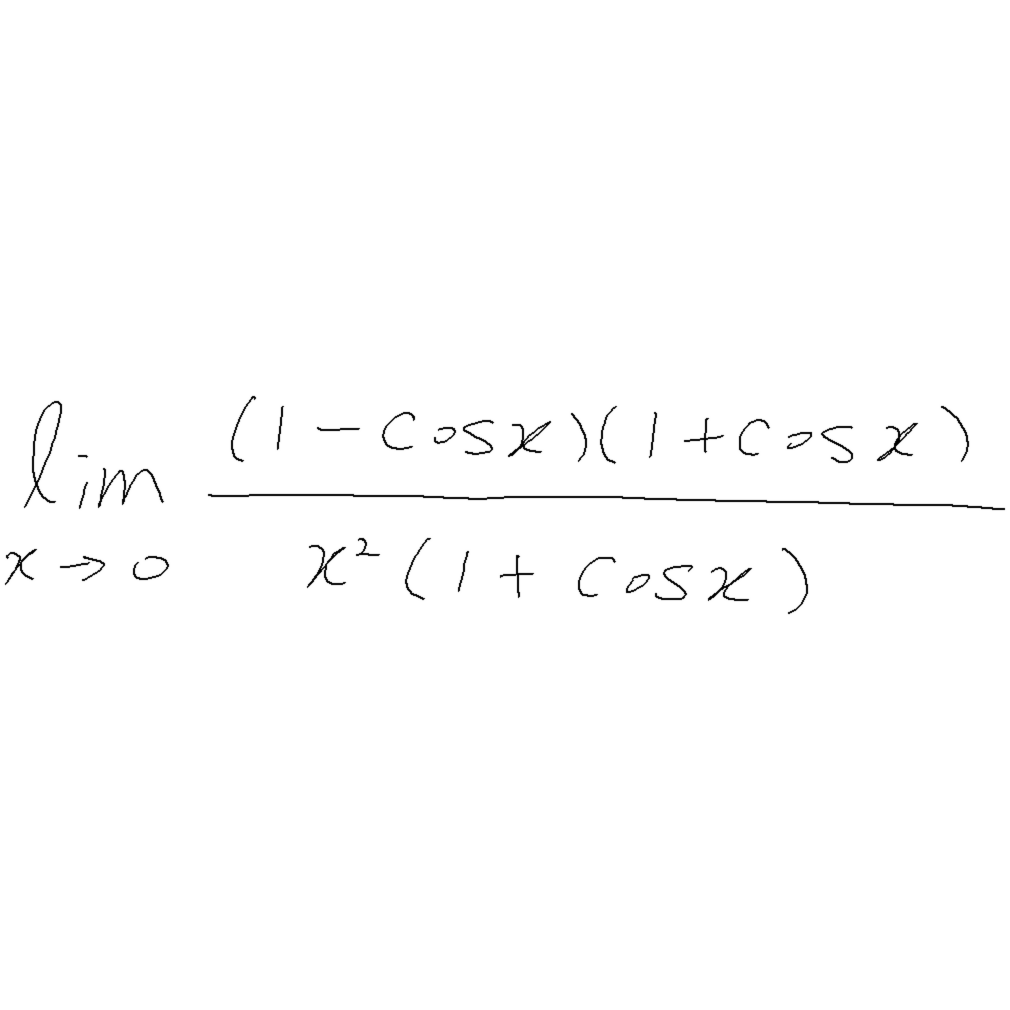 lim (1-cosx)(1+cosx)
x→0 x²(1+cosx)